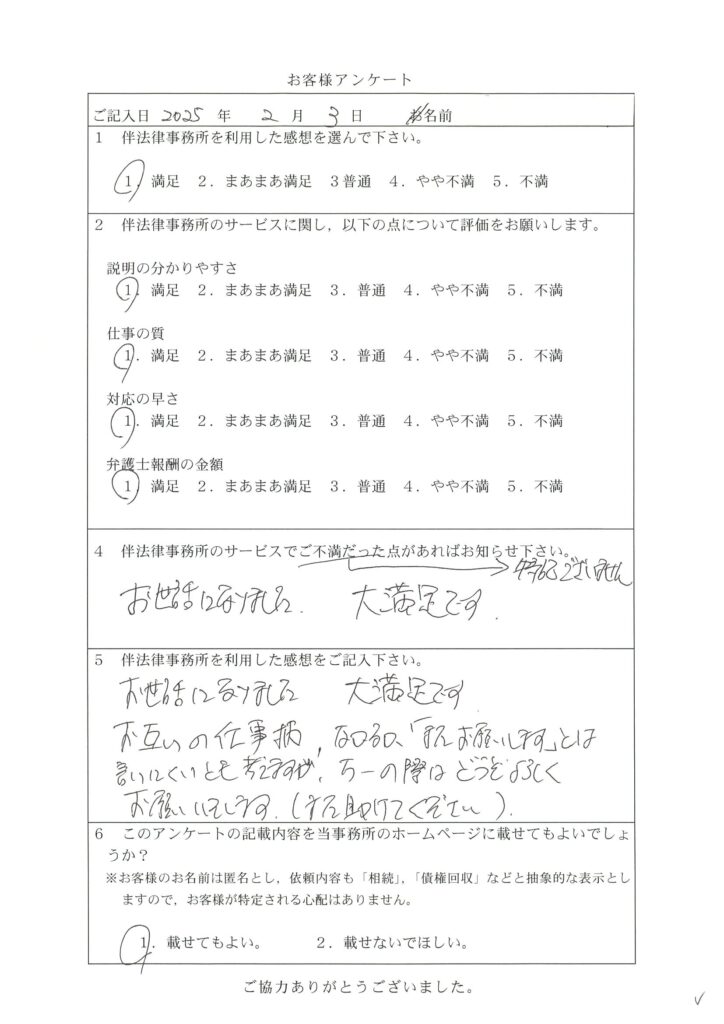 お客様アンケート
ご記入日 2025 年 2 月 3 日 お名前
1 伴法律事務所を利用した感想を選んで下さい。
1．満足 2．まあまあ満足 3普通 4．やや不満 5．不満
2 伴法律事務所のサービスに関し，以下の点について評価をお願いします。
説明の分かりやすさ
1．満足 2．まあまあ満足 3．普通 4．やや不満 5．不満
仕事の質
1．満足 2．まあまあ満足 3．普通 4．やや不満 5．不満
対応の早さ
1．満足 2．まあまあ満足 3．普通 4．やや不満 5．不満
弁護士報酬の金額
1．満足 2．まあまあ満足 3．普通 4．やや不満 5．不満
4 伴法律事務所のサービスでご不満だった点があればお知らせ下さい。
ございません
お世話になりました． 大満足です．
5 伴法律事務所を利用した感想をご記入下さい。
お世話になりました 大満足です
お互いの仕事柄，「またお願いします」とは
言いにくいとも考えますが，万一の際はどうぞよろしく
お願いいたします．（また助けてください）．
6 このアンケートの記載内容を当事務所のホームページに載せてもよいでしょ
うか？
※お客様のお名前は匿名とし，依頼内容も「相続」，「債権回収」などと抽象的な表示とし
ますので，お客様が特定される心配はありません。
1．載せてもよい。 2．載せないでほしい。
ご協力ありがとうございました。